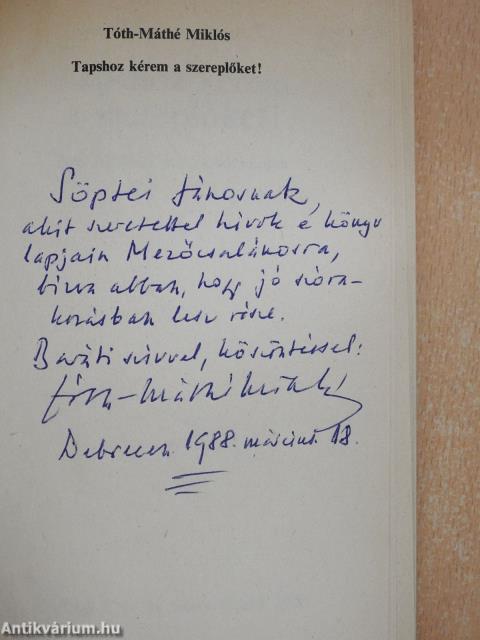 Tóth-Máthé Miklós
Tapshoz kérem a szereplőket!
Söptei Jánosnak,
akit szeretettel hívok e könyv
lapjain Mezőcsalánosra,
bízva abban, hogy jó szóra-
kozásban lesz része.
Baráti szívvel, köszöntéssel:
Tóth-Máthé Miklós
Debrecen. 1988. március. 18.
Antikvárium.hu